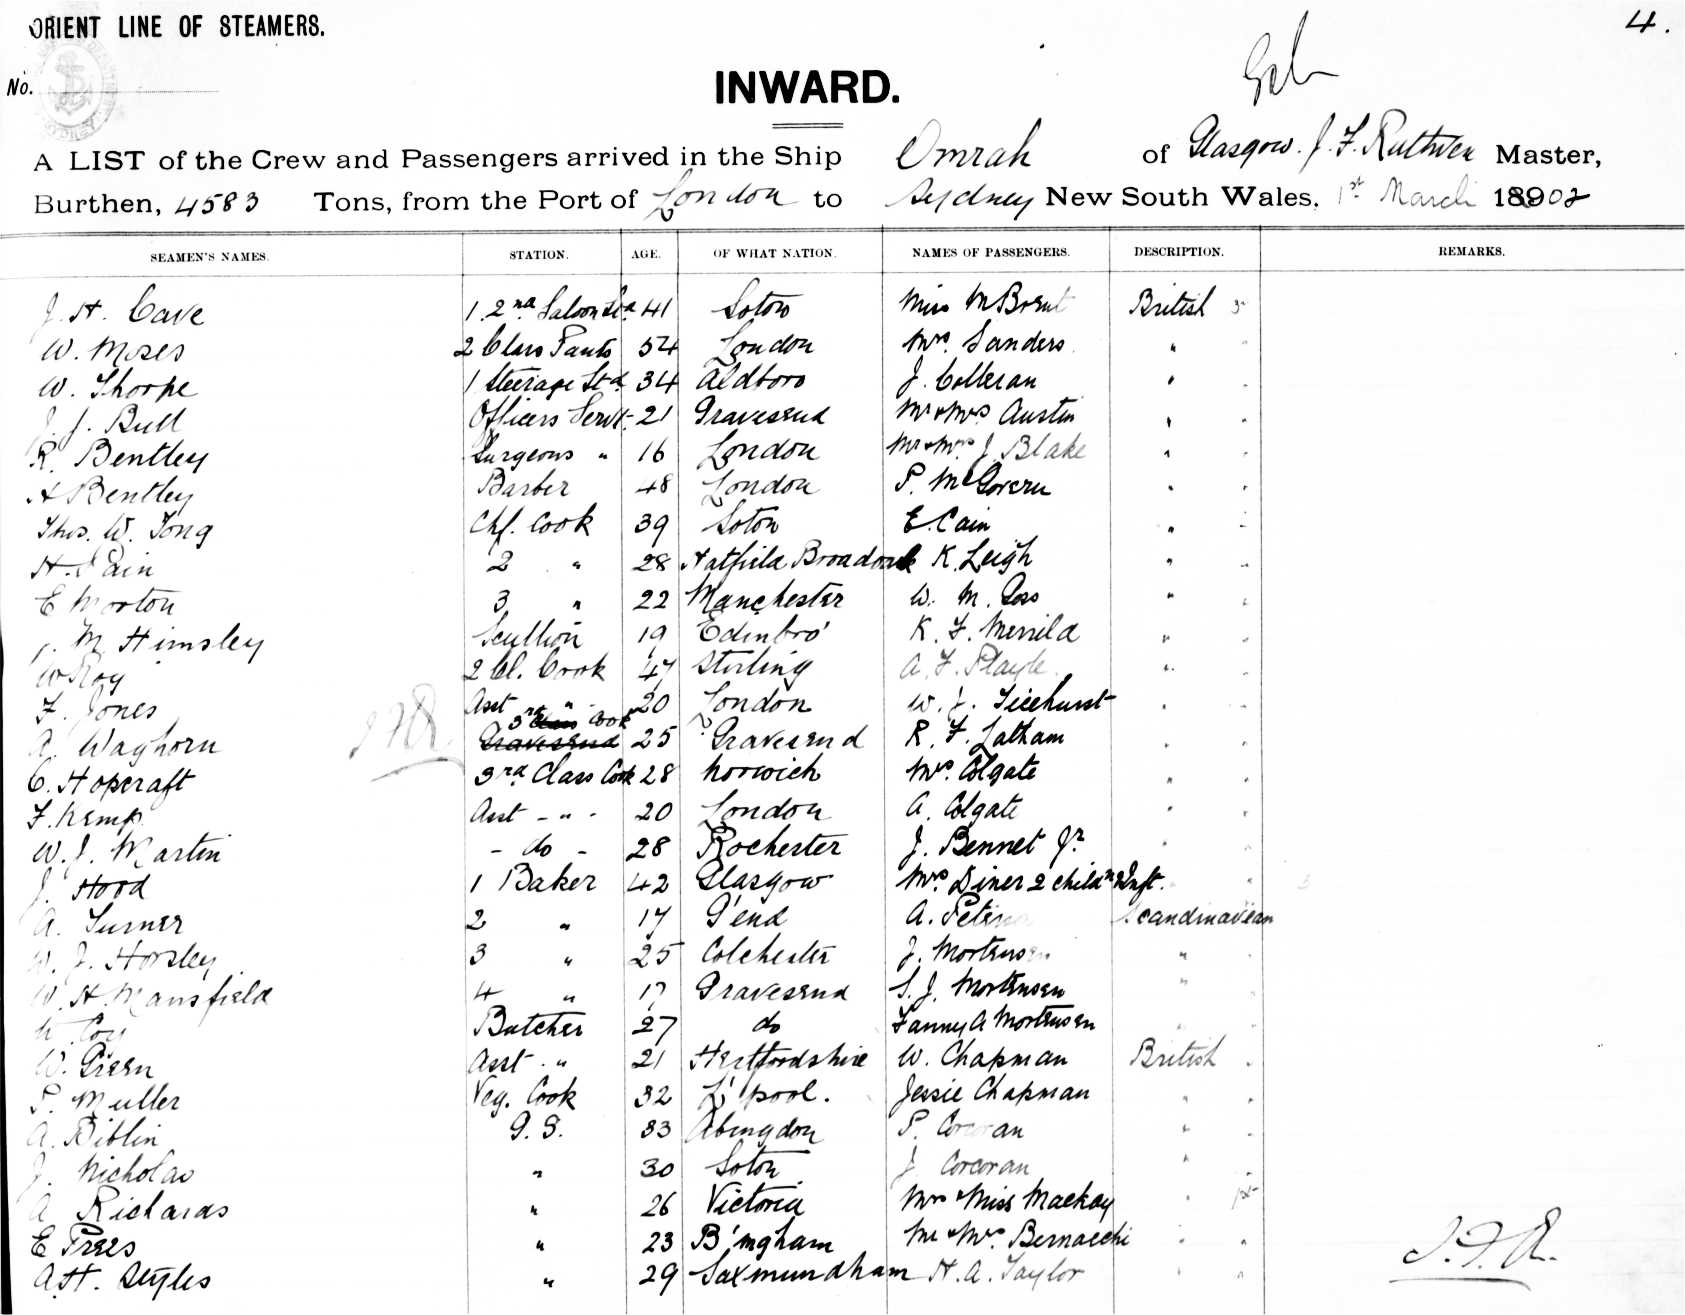 ORIENT LINE OF STEAMERS.
4.
No.
INWARD.
A LIST of the Crew and Passengers arrived in the Ship Omrah of Glasgow. J. F. Ruthven Master,
Burthen, 4583 Tons, from the Port of London to Sydney New South Wales, 1st March 1902
SEAMEN'S NAMES. STATION. AGE. OF WHAT NATION. NAMES OF PASSENGERS. DESCRIPTION. REMARKS.
J. H. Cave 1. 2nd Saloon 41 Soton Miss M British
W. Moses 2 Class Pants 54 London Mrs. Sanders "
W. Thorpe 1 Steerage Std. 34 Aldboro J. Colleran "
J. J. Bull Officers Servt. 21 Gravesend Mr & Mrs Austin "
R. Bentley Surgeons " 16 London Mr & Mrs J Blake "
A Bentley Barber 48 London P. McGovern "
Thos. W. Tong Chf. Cook 39 Soton E. Cain "
H. Pain 2 " 28 Hatfield Broadoak K. Leigh "
E Morton 3 " 22 Manchester W. M. Goss "
M Himsley Scullion 19 Edinbro' K. F. Merrild "
W Roy 2 Cl. Cook 47 Stirling A. F. Playle "
F. Jones Asst " 20 London W. J. Ticehurst
3rd Cook
A. Waghorn Gravesend 25 Gravesend R. F. Latham "
C. Hopcraft 3rd Class Cook 28 Norwich Mrs. Colgate "
F. Kemp Asst - " - 20 London A. Colgate "
W. J. Martin - do - 28 Rochester J. Bennet Jr. "
J. Hood 1 Baker 42 Glasgow Mrs Diner 2 childn & Inft.
A. Turner 2 " 17 G'end A. Scandinavian
W. J. Horsley 3 " 25 Colchester J. Mortensen "
W. H. Mansfield 4 " 17 Gravesend S. J. Mortensen "
Coy Butcher 27 do Fanny A Mortensen "
W. Green Asst. " 21 Hertfordshire W. Chapman British
P. Muller Veg. Cook 32 L'pool. Jessie Chapman "
A. Biblin G. S. 33 Abingdon P. Corcoran "
J. Nicholas " 30 Soton J Corcoran "
A Richards " 26 Victoria Mrs & Miss Mackay "
E Prees " 23 B'mgham Mr & Mrs. Bernacchi "
A.H. Styles " 29 Saxmundham H. A. Taylor "
J. F. R.
J. F. R.